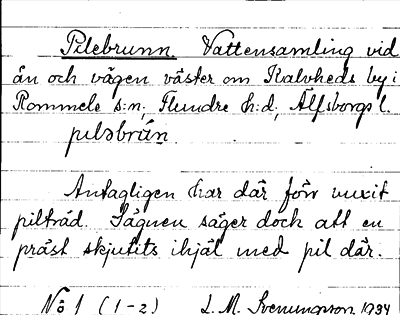 Pilebrunn Vattensamling vid
ån och vägen väster om Kalvheds by i
Rommele s:n, Flundre h:d, Älfsborgs l.
piləbrun
Antagligen har där förr vuxit
pilträd. Sägnen säger dock att en
präst skjutits ihjäl med pil där.
No 1 (1-2) L. M. Svenungsson 1934